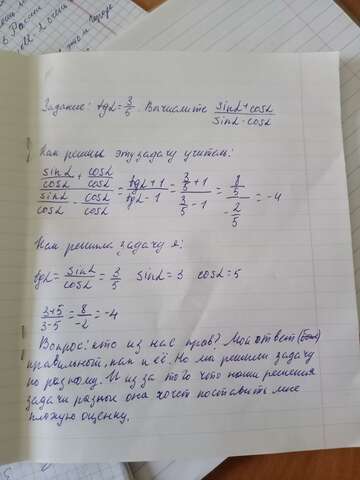 Задание: tgα = 3/5. Вычислите (sinα + cosα)/(sinα - cosα)
Как решил эту задачу учитель:
(sinα/cosα + cosα/cosα)/(sinα/cosα - cosα/cosα) = (tgα + 1)/(tgα - 1) = (3/5 + 1)/(3/5 - 1) = (8/5)/(-2/5) = -4
Как решила задачу я:
tgα = sinα/cosα = 3/5 sinα = 3 cosα = 5
(3+5)/(3-5) = 8/-2 = -4
Вопрос: кто из нас прав? Мой ответ (был)
правильный, как и её. Но мы решили задачу
по разному. И из за того что наши решения
задачи разные она хочет поставить мне
плохую оценку.